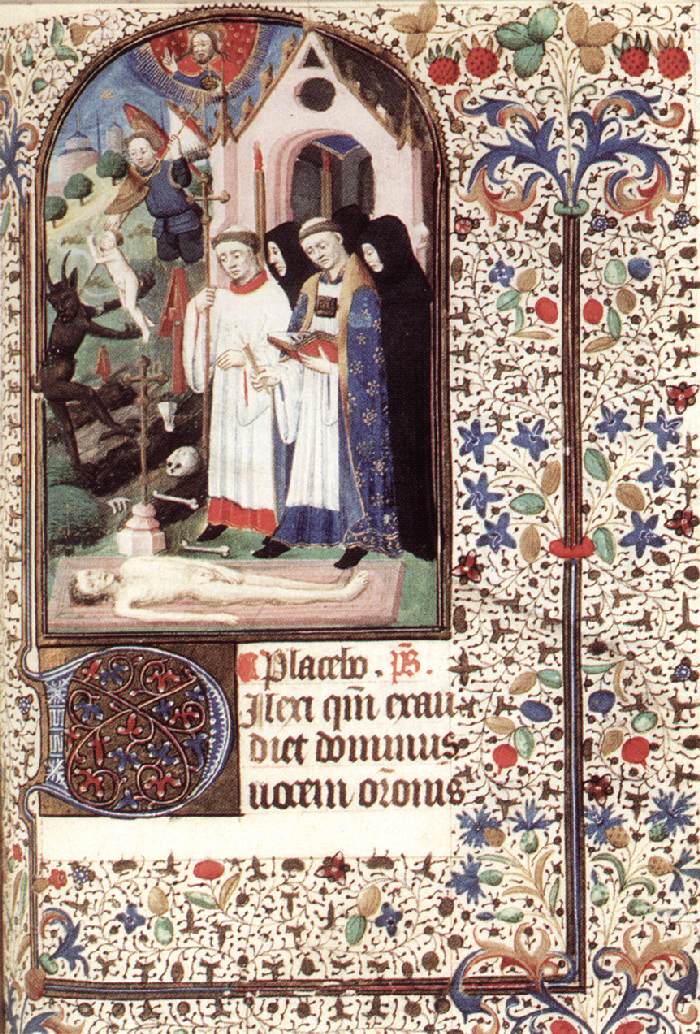 Placebo. p̄s.
Dilexi qm̄ exau
diet dominus
uocem or̄onis